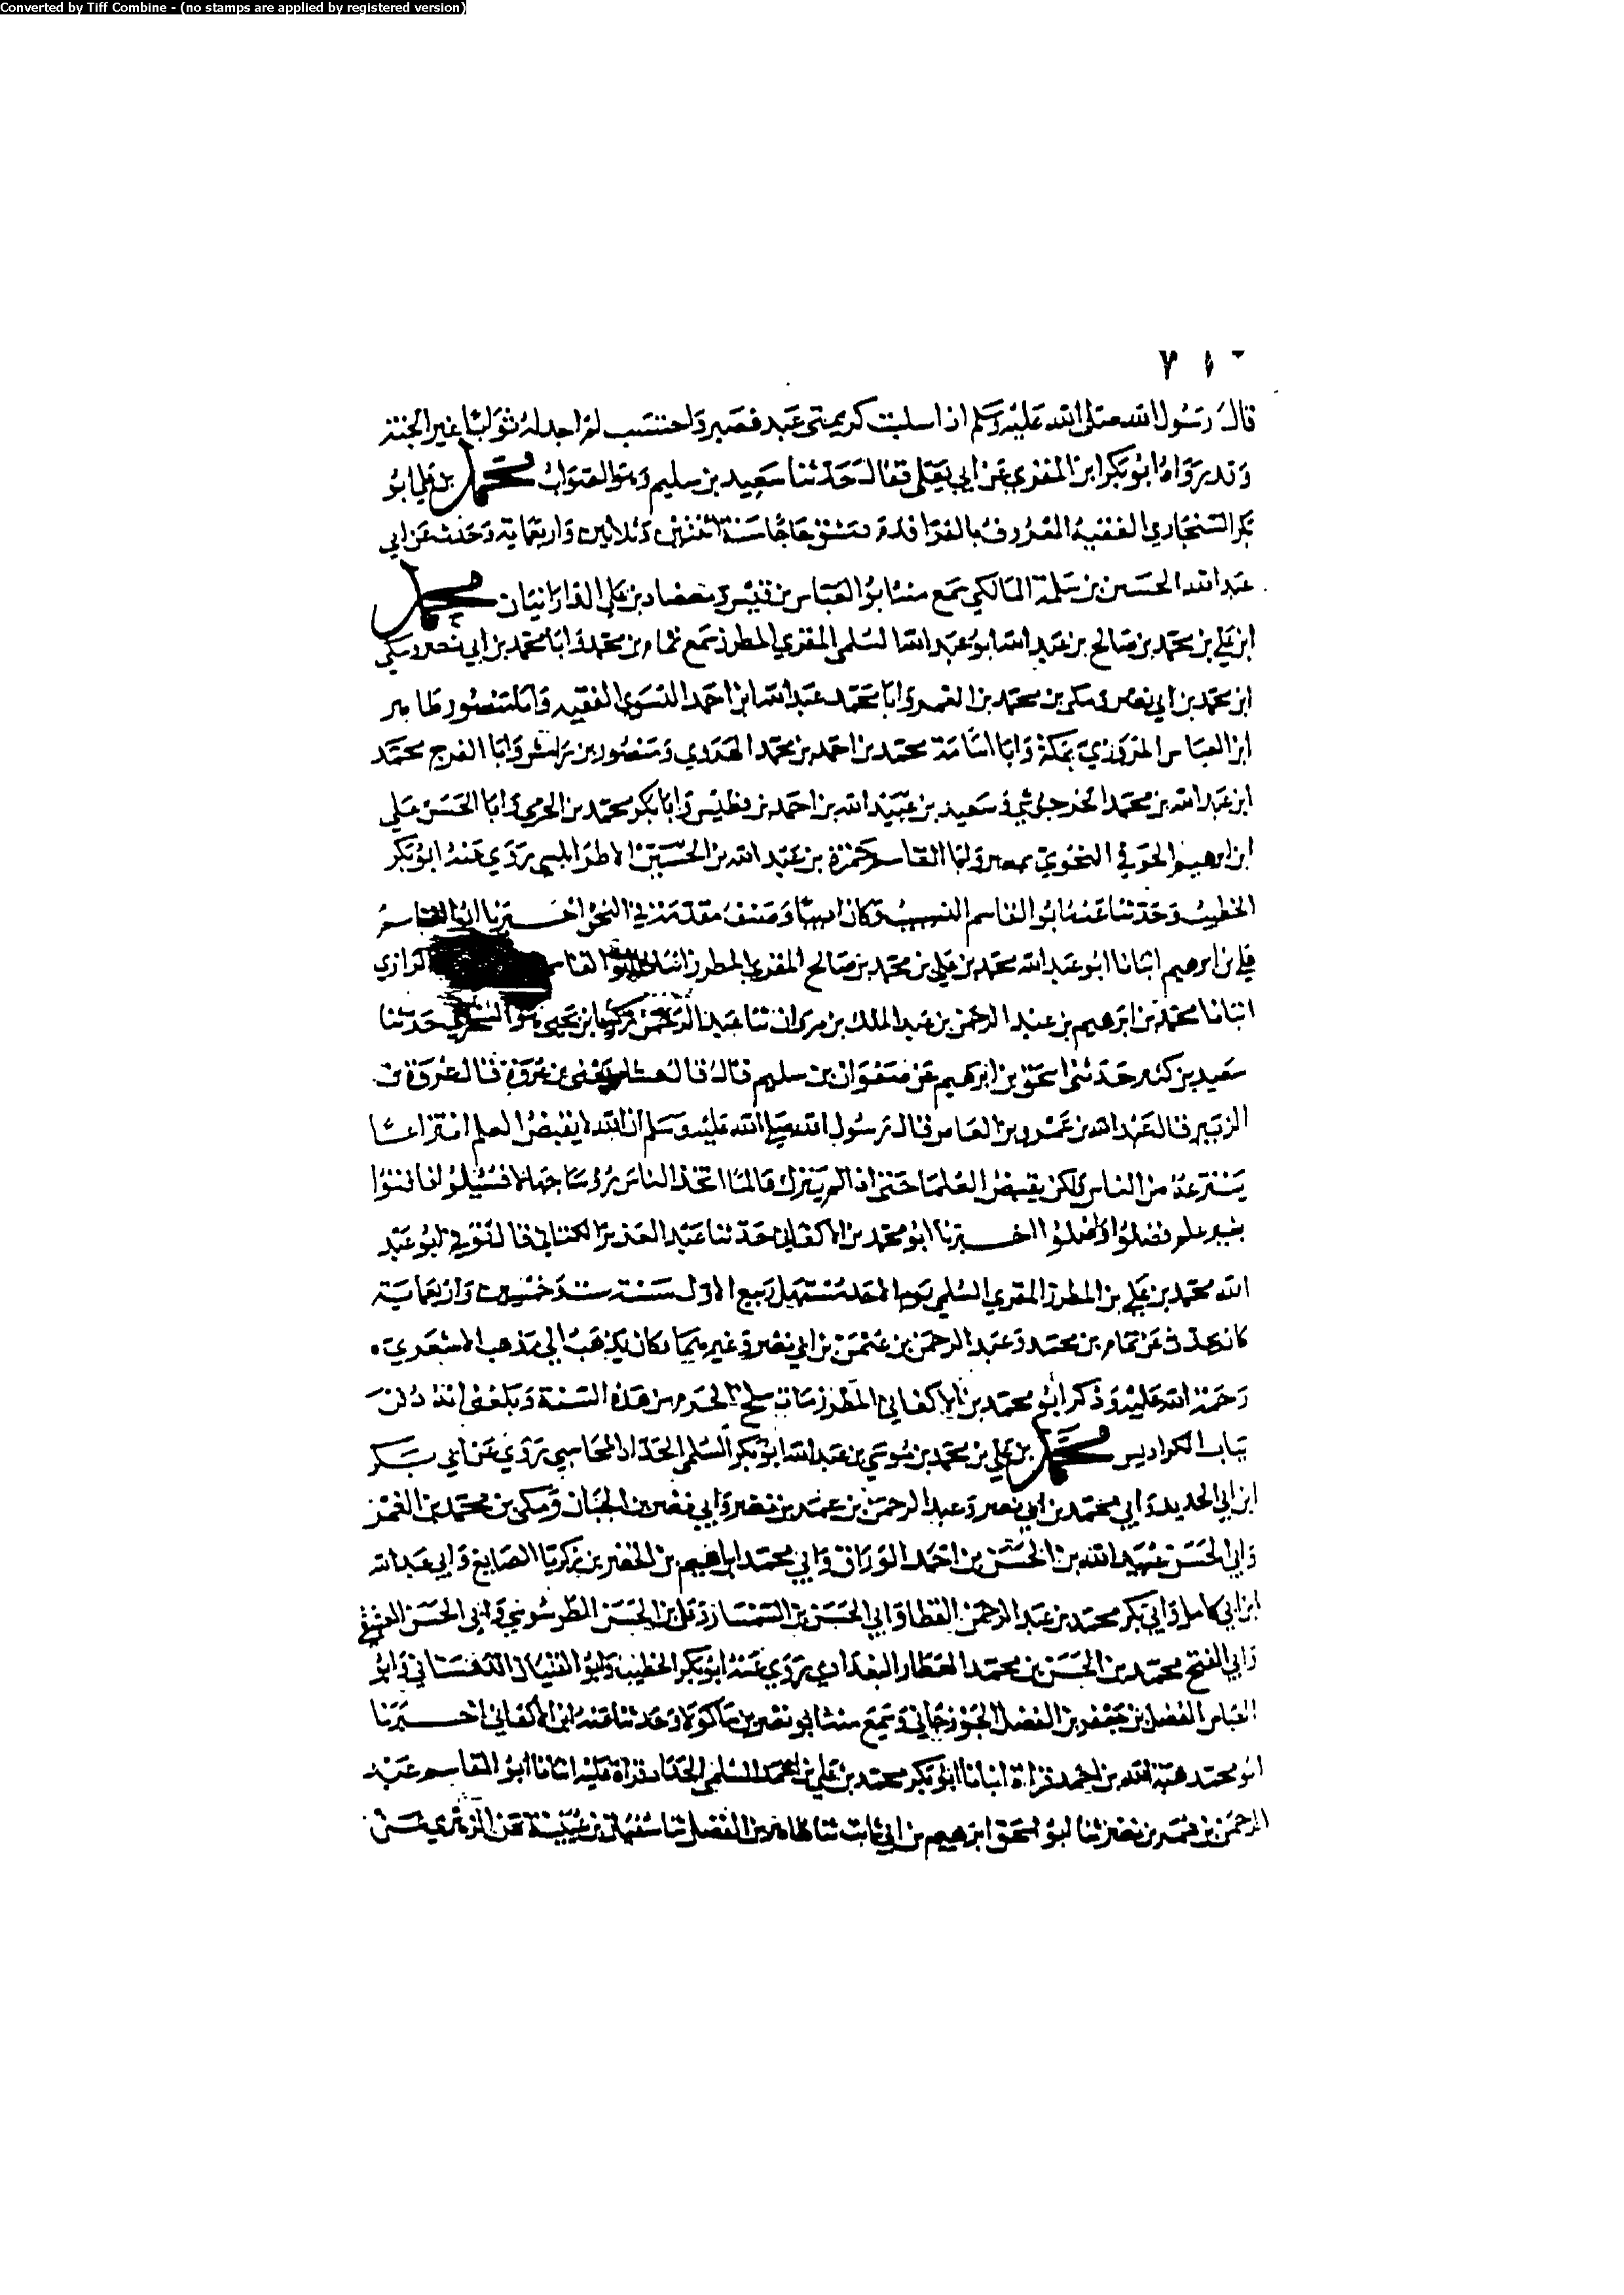 Converted by Tiff Combine - (no stamps are applied by registered version)
٧١
قال رسول الله صلى الله عليه وسلم اذا سلبت كريمتي عبد فصبر واحتسب لم اجد له ثوابا غير الجنة
وقد رواه ابو بكر ابن المقري عن ابي يعلى فقال حدثنا سعيد بن سليم وهو الصواب محمد بن علي ابو
بكر السنجاري الفقيه المعروف بالفرا قدم دمشق حاجا سنة اثنتين وثلاثين واربعماية وحدث عن ابي
عبد الله الحسين بن سلمة المالكي سمع منه ابو العباس بن قبيس ومعضاد بن علي الدارانيان محمد
ابن علي بن محمد بن صالح بن عبد الله ابو عبد الله السلمي المقري المطرز سمع تمام بن محمد وابا محمد بن ابي نصر ومكي
ابن محمد بن ابي نصر ومكي بن محمد بن الغمر وابا محمد عبد الله ابن احمد النسوي الفقيه وابا منصور طاهر
ابن العباس المروزي بمكة وابا اسامة محمد بن احمد بن محمد الهروي ومنصور بن رامش وابا الفرج محمد
ابن عبد الله بن محمد الخرجوشي وسعيد بن عبيد الله بن احمد بن فطيس وابا بكر محمد بن الحرمي وابا الحسن علي
ابن ابرهيم الحوفي النحوي بمصر وابا القاسم حمزة بن عبد الله بن الحسين الاطرابلسي روى عنه ابو بكر
الخطيب وحدثنا عنه ابو القاسم النسيب وكان اديبا وصنف مقدمة في النحو اخبرنا ابو القاسم
علي بن ابرهيم انبانا ابو عبد الله محمد بن علي بن محمد بن صالح المقري المطرز القاسم الرازي
انبانا محمد بن ابرهيم بن عبد الرحمن بن عبد الملك بن مروان ثنا عبد الرحمن زكريا بن يحيى هو السجزي حدثنا
سعيد بن كثير حدثني اسحق بن ابرهيم عن صفوان بن سليم قال قال هشام يعني بن عروة قال عروة بن
الزبير قال عبد الله بن عمرو بن العاص قال رسول الله صلى الله عليه وسلم ان الله لا يقبض العلم انتزاعا
ينتزعه من الناس ولكن يقبض العلما حتى اذا لم يترك عالما اتخذ الناس رؤوسا جهالا فسئلوا فافتوا
بغير علم فضلوا واضلوا اخبرنا ابو محمد بن الاكفاني حدثنا عبد العزيز الكتاني قال توفي ابو عبد
الله محمد بن علي بن المطرز المقري السلمي يوم الاحد مستهل ربيع الاول سنة ست وخمسين واربعماية
كان يحدث عن تمام بن محمد وعبد الرحمن بن عثمن بن ابي نصر وغيرهما وكان يذهب الى مذهب الاشعري
رحمة الله عليه وذكر ابو محمد بن الاكفاني المطرز مات سلخ المحرم من هذه السنة وبلغني انه دفن
بباب الكراديس محمد بن علي بن محمد بن موسى بن عبد الله ابو بكر السلمي الحداد المحاسبي روى عن ابي بكر
ابن ابي الحديد وابي محمد بن ابي نصر وعبد الرحمن بن عمر بن نصر وابي نصر بن الجبان ومكي بن محمد بن الغمر
وابي الحسن عبيد الله بن الحسن بن احمد الوراق وابي محمد ابراهيم بن الخضر بن زكريا الصايغ وابي عبد الله
ابن ابي كامل وابي بكر محمد بن عبد الرحمن القطان وابي الحسن بن السمسار وعلي بن الحسن الطرسوسي وابي الحسن العتيقي
وابي الفتح محمد بن الحسن بن محمد العطار البغدادي روى عنه ابو بكر الخطيب وابو الفتيان الدهستاني وابو
العباس الفضل بن جعفر بن الفضل الجوزجاني وسمع منه ابو نصر بن ماكولا وحدثنا عنه ابن الاكفاني اخبرنا
ابو محمد هبة الله بن احمد قراة انبانا ابو بكر محمد بن علي بن محمد السلمي الحداد قراة عليه انبانا ابو القاسم عبد
الرحمن بن عمر بن نصر ثنا ابو اسحق ابرهيم بن ابي ثابت ثنا طاهر بن الفضل ثنا سفيان بن عيينة عن الزهري عن